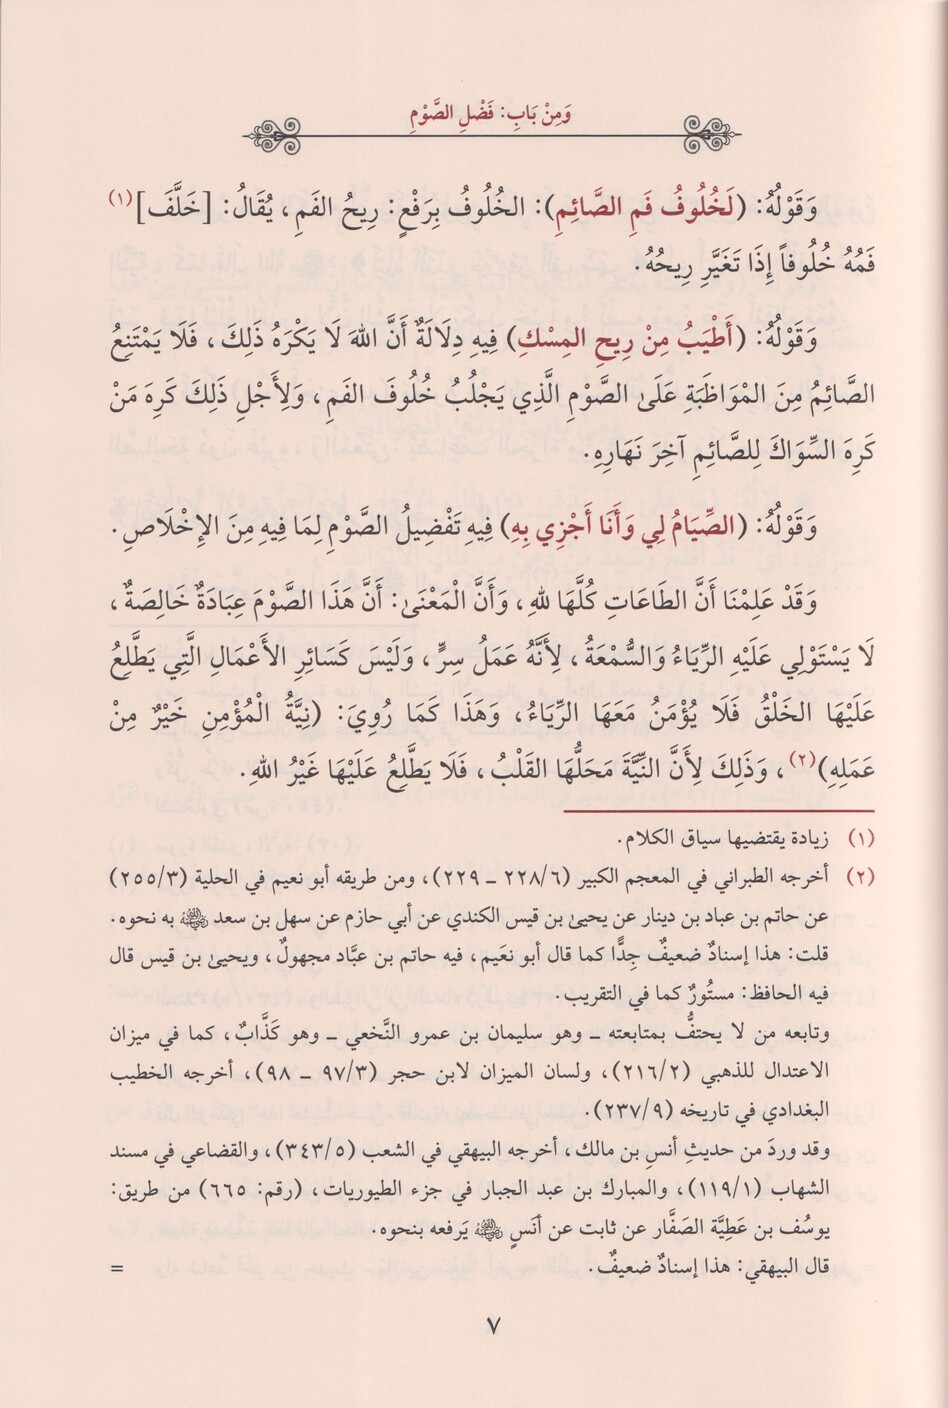 وَمِنْ بَابِ: فَضْلِ الصَّوْمِ
وَقَوْلُهُ: (لَخُلُوفُ فَمِ الصَّائِمِ): الخُلُوفُ بِرَفْعٍ: رِيحُ الفَمِ، يُقَالُ: [خَلَّفَ](١)
فَمُهُ خُلُوفاً إِذَا تَغَيَّرَ رِيحُهُ.
وَقَوْلُهُ: (أَطْيَبُ مِنْ رِيحِ المِسْكِ) فِيهِ دِلَالَةٌ أَنَّ اللهَ لَا يَكْرَهُ ذَلِكَ، فَلَا يَمْتَنِعُ
الصَّائِمُ مِنَ الْمْوَاظَبَةِ عَلَىٰ الصَّوْمِ الَّذِي يَجْلُبُ خُلُوفَ الفَمِ، وَلِأَجْلِ ذَلِكَ كَرِهَ مَنْ
كَرِهَ السِّوَاكَ لِلصَّائِمِ آخِرَ نَهَارِهِ.
وَقَوْلُهُ: (الصِّيَامُ لِي وَأَنَا أَجْزِي بِهِ) فِيهِ تَفْضِيلُ الصَّوْمِ لِمَا فِيهِ مِنَ الإِخْلَاصِ.
وَقَدْ عَلِمْنَا أَنَّ الطَاعَاتِ كُلَّهَا لِلهِ، وَأَنَّ الْمَعْنَىٰ: أَنَّ هَذَا الصَّوْمَ عِبَادَةٌ خَالِصَةٌ،
لَا يَسْتَوْلِي عَلَيْهِ الرِّيَاءُ وَالسُّمْعَةُ، لِأَنَّهُ عَمَلُ سِرٍّ، وَلَيْسَ كَسَائِرِ الأَعْمَالِ الَّتِي يَطَّلِعُ
عَلَيْهَا الخَلْقُ فَلَا يُؤْمَنُ مَعَهَا الرِّيَاءُ، وَهَذَا كَمَا رُوِيَ: (نِيَّةُ الْمُؤْمِنِ خَيْرٌ مِنْ
عَمَلِهِ)(٢)، وَذَلِكَ لِأَنَّ النِّيَّةَ مَحَلُّهَا القَلْبُ، فَلَا يَطَّلِعُ عَلَيْهَا غَيْرُ اللهِ.
(١) زيادة يقتضيها سياق الكلام.
(٢) أخرجه الطبراني في المعجم الكبير (٢٢٨/٦ ـ ٢٢٩)، ومن طريقه أبو نعيم في الحلية (٢٥٥/٣)
عن حاتم بن عباد بن دينار عن يحيىٰ بن قيس الكندي عن أبي حازم عن سهل بن سعد ﵁ به نحوه.
قلت: هذا إسنادٌ ضعيفٌ جِدًّا كما قال أبو نعَيم، فيه حاتم بن عبَّاد مجهولٌ، ويحيىٰ بن قيس قال
فيه الحافظ: مستُورٌ كما في التقريب.
وتابعه من لا يحتفُّ بمتابعته ـ وهو سليمان بن عمرو النَّخعي ـ وهو كَذَّابٌ، كما في ميزان
الاعتدال للذهبي (٢١٦/٢)، ولسان الميزان لابن حجر (٩٧/٣ ـ ٩٨)، أخرجه الخطيب
البغدادي في تاريخه (٢٣٧/٩).
وقد وردَ من حديثِ أنسِ بن مالك، أخرجه البيهقي في الشعب (٣٤٣/٥)، والقضاعي في مسند
الشهاب (١١٩/١)، والمبارك بن عبد الجبار في جزء الطيوريات، (رقم: ٦٦٥) من طريق:
يوسُف بن عَطِيَّة الصَفَّار عن ثابت عن أَنَسٍ ﵁ يَرفعه بنحوه.
قال البيهقي: هذا إسنادٌ ضعيفٌ. =
٧